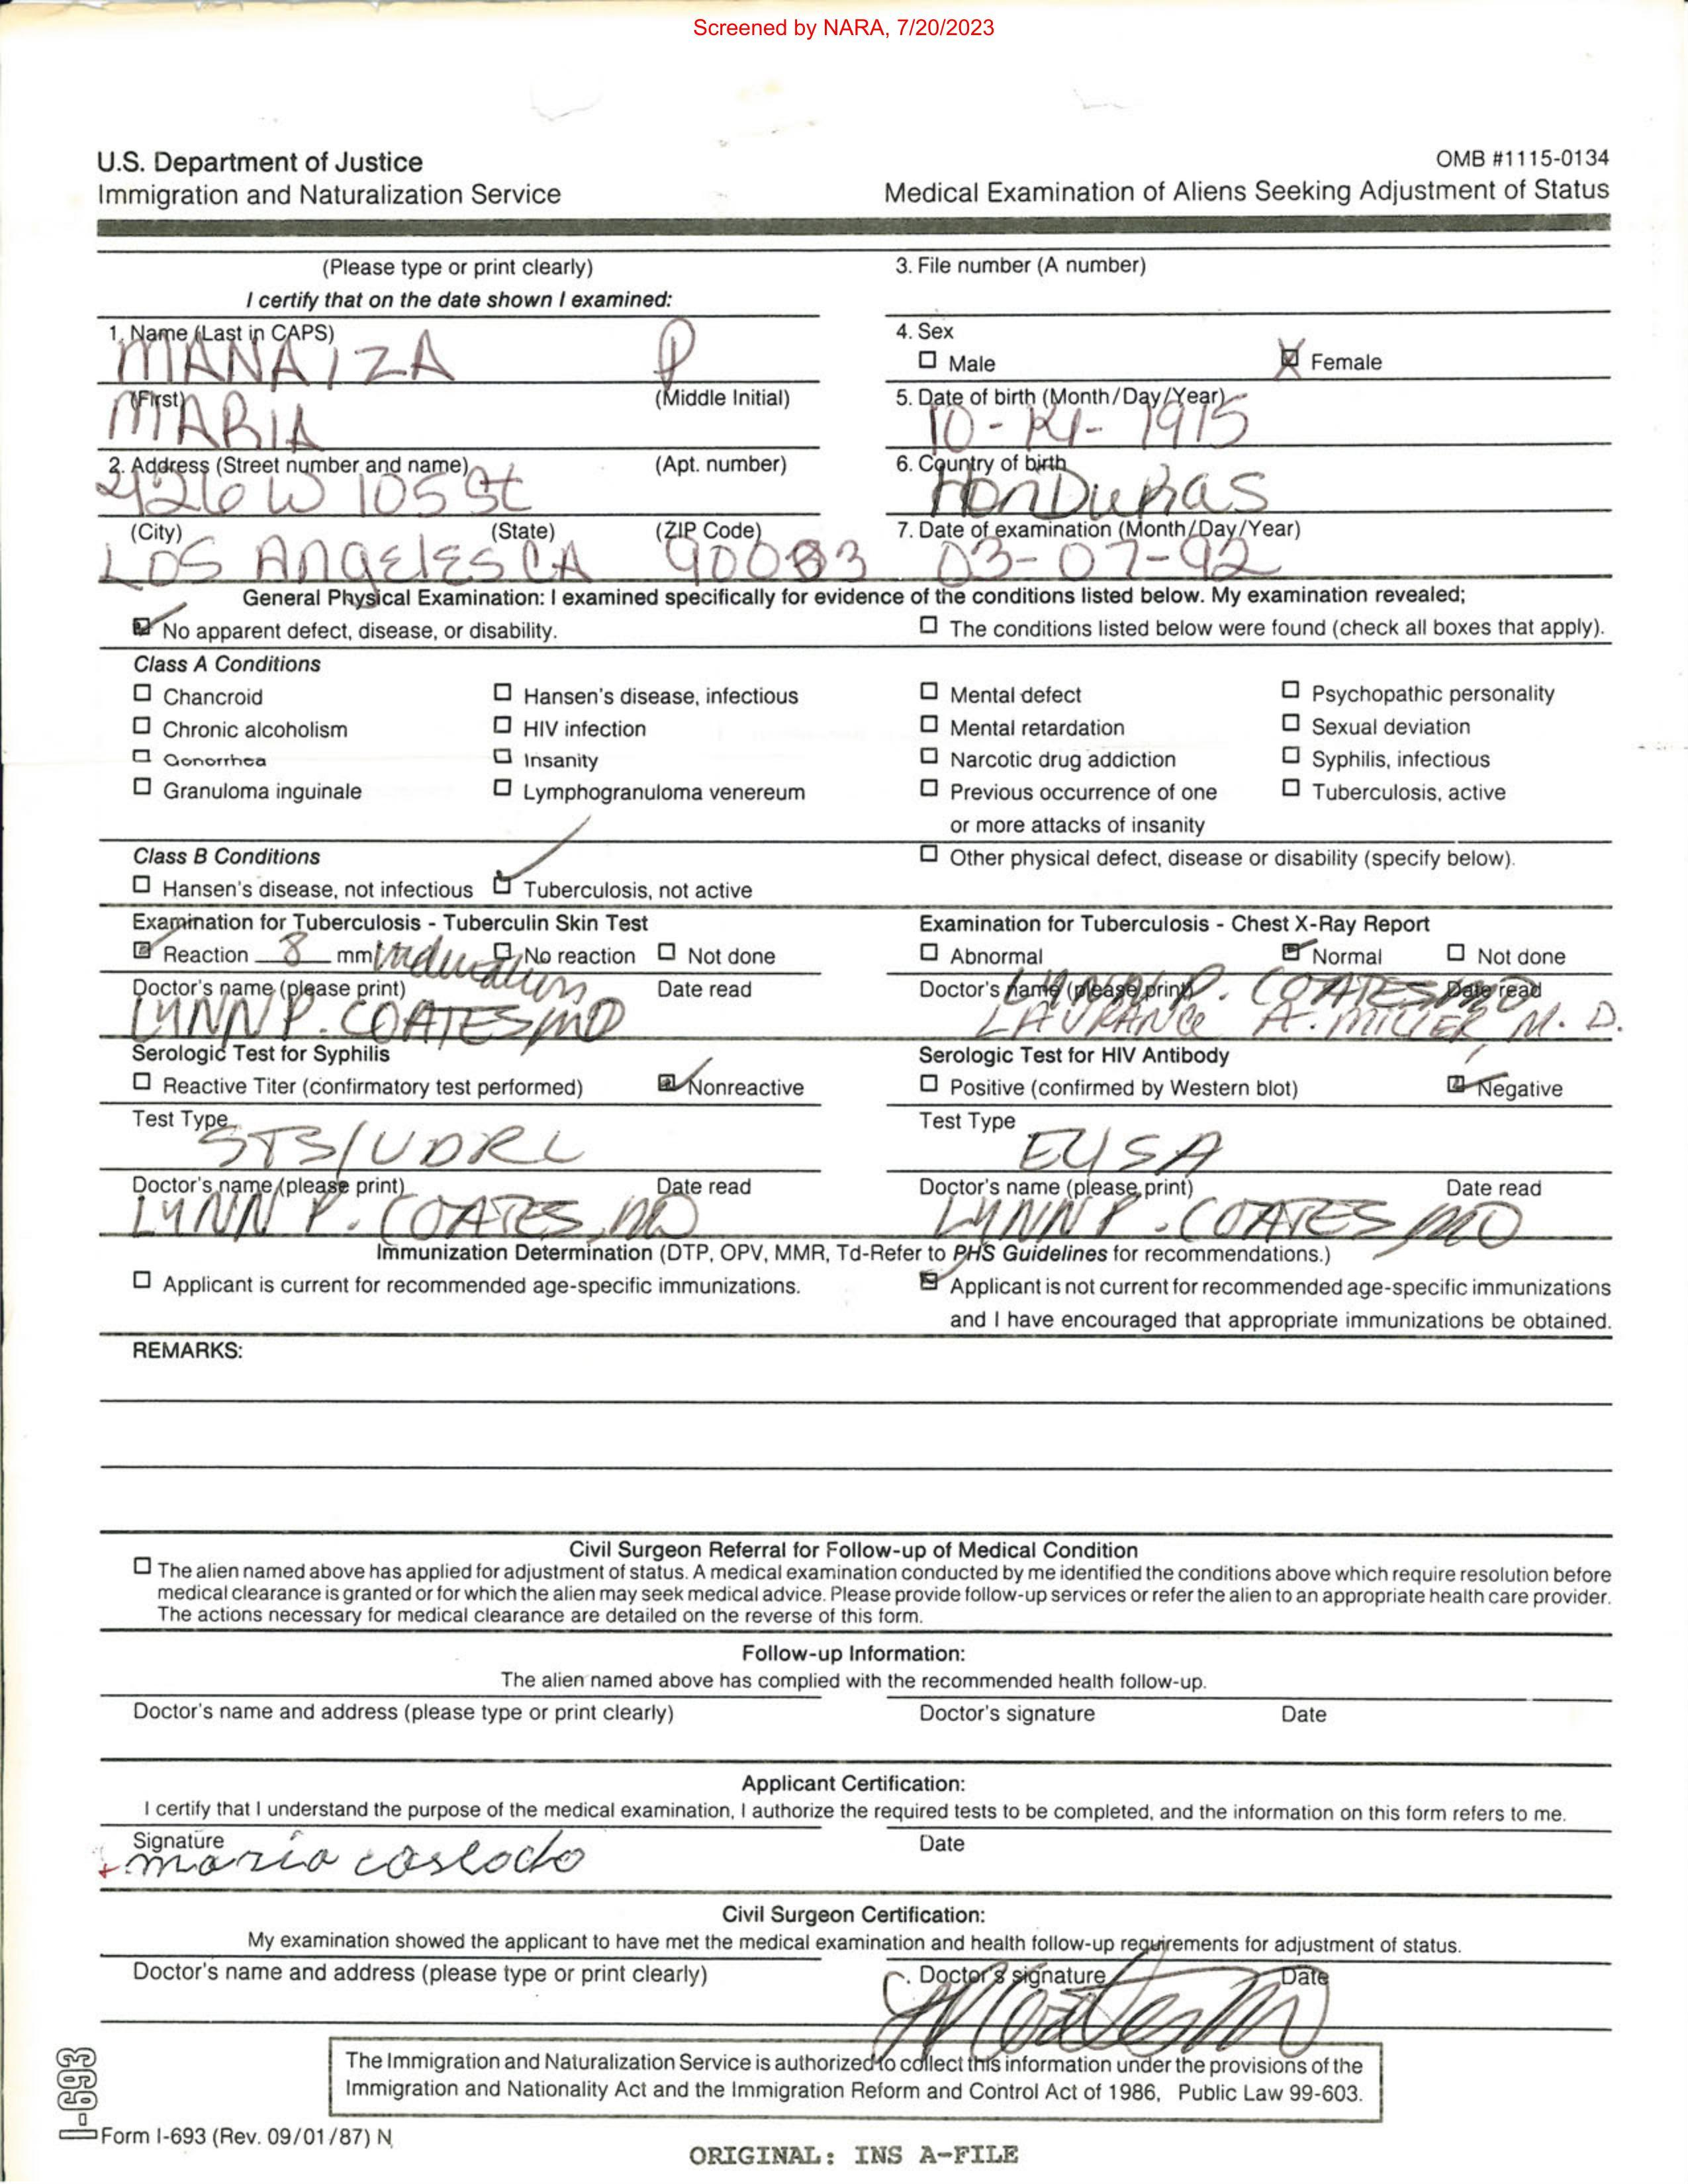 Screened by NARA, 7/20/2023
U.S. Department of Justice
Immigration and Naturalization Service
OMB #1115-0134
Medical Examination of Aliens Seeking Adjustment of Status
(Please type or print clearly)
I certify that on the date shown I examined:
3. File number (A number)
1. Name (Last in CAPS)
MANAIZA P
(Middle Initial)
4. Sex
☐ Male ☒ Female
(First)
MARIA
5. Date of birth (Month/Day/Year)
10- -1915
2. Address (Street number and name) (Apt. number)
426 W 105 St
6. Country of birth
HonDuRas
(City) (State) (ZIP Code)
LOS AngelesCA
7. Date of examination (Month/Day/Year)
03-07-92
General Physical Examination: I examined specifically for evidence of the conditions listed below. My examination revealed;
☑ No apparent defect, disease, or disability. ☐ The conditions listed below were found (check all boxes that apply).
Class A Conditions
☐ Chancroid ☐ Hansen's disease, infectious ☐ Mental defect ☐ Psychopathic personality
☐ Chronic alcoholism ☐ HIV infection ☐ Mental retardation ☐ Sexual deviation
☐ Gonorrhea ☐ Insanity ☐ Narcotic drug addiction ☐ Syphilis, infectious
☐ Granuloma inguinale ☐ Lymphogranuloma venereum ☐ Previous occurrence of one ☐ Tuberculosis, active
or more attacks of insanity
Class B Conditions
☐ Other physical defect, disease or disability (specify below).
☐ Hansen's disease, not infectious ☑ Tuberculosis, not active
Examination for Tuberculosis - Tuberculin Skin Test
☑ Reaction 8 mm induration ☐ No reaction ☐ Not done
Doctor's name (please print) Date read
LYNN P. COATES, MD
Examination for Tuberculosis - Chest X-Ray Report
☐ Abnormal ☑ Normal ☐ Not done
Doctor's name (please print) Date read
LYNN P. COATES MD
LAURANCE A. MILLER M. D.
Serologic Test for Syphilis
☐ Reactive Titer (confirmatory test performed) ☑ Nonreactive
Test Type
STS/VDRL
Doctor's name (please print) Date read
LYNN P. COATES, MD
Serologic Test for HIV Antibody
☐ Positive (confirmed by Western blot) ☑ Negative
Test Type
ELISA
Doctor's name (please print) Date read
LYNN P. COATES MD
Immunization Determination (DTP, OPV, MMR, Td-Refer to PHS Guidelines for recommendations.)
☐ Applicant is current for recommended age-specific immunizations.
☑ Applicant is not current for recommended age-specific immunizations
and I have encouraged that appropriate immunizations be obtained.
REMARKS:
Civil Surgeon Referral for Follow-up of Medical Condition
☐ The alien named above has applied for adjustment of status. A medical examination conducted by me identified the conditions above which require resolution before
medical clearance is granted or for which the alien may seek medical advice. Please provide follow-up services or refer the alien to an appropriate health care provider.
The actions necessary for medical clearance are detailed on the reverse of this form.
Follow-up Information:
The alien named above has complied with the recommended health follow-up.
Doctor's name and address (please type or print clearly) Doctor's signature Date
Applicant Certification:
I certify that I understand the purpose of the medical examination, I authorize the required tests to be completed, and the information on this form refers to me.
Signature Date
maria
Civil Surgeon Certification:
My examination showed the applicant to have met the medical examination and health follow-up requirements for adjustment of status.
Doctor's name and address (please type or print clearly) Doctor's signature Date
The Immigration and Naturalization Service is authorized to collect this information under the provisions of the
Immigration and Nationality Act and the Immigration Reform and Control Act of 1986, Public Law 99-603.
I-693
Form I-693 (Rev. 09/01/87) N
ORIGINAL: INS A-FILE